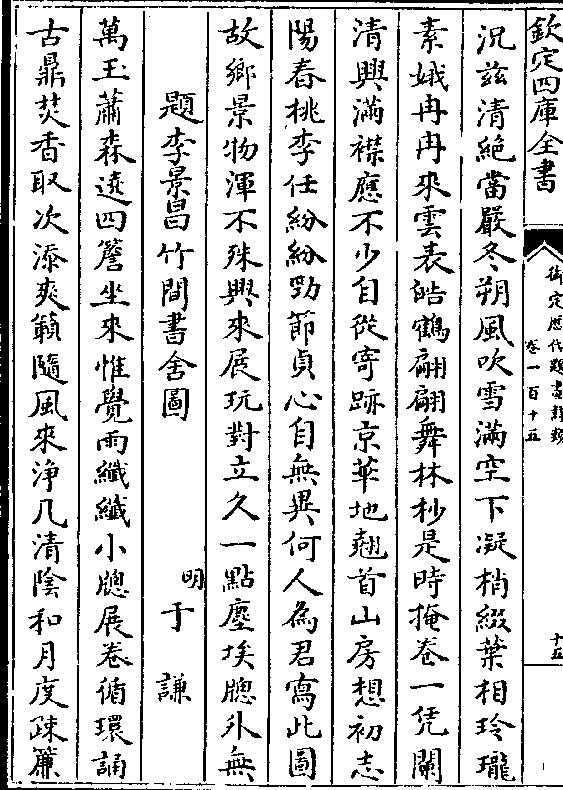 欽定四庫全書
御定歷代題畫詩類
卷一百十五
十五
況兹清絶當嚴冬朔風吹雪滿空下凝梢綴葉相玲瓏
素娥冉冉來雲表皓鶴翩翩舞林杪是時掩卷一凭闌
清興滿襟應不少自從寄跡京華地翹首山房想初志
陽春桃李任紛紛勁節貞心自無異何人為君寫此圖
故鄉景物渾不殊興來展玩對立久一點塵埃牕外無
題李景昌竹間書舍圖
明于謙
萬玉蕭森遶四簷坐來惟覺雨纖纖小牕展卷循環誦
古鼎焚香取次添爽籟隨風來淨几清陰和月度疎簾